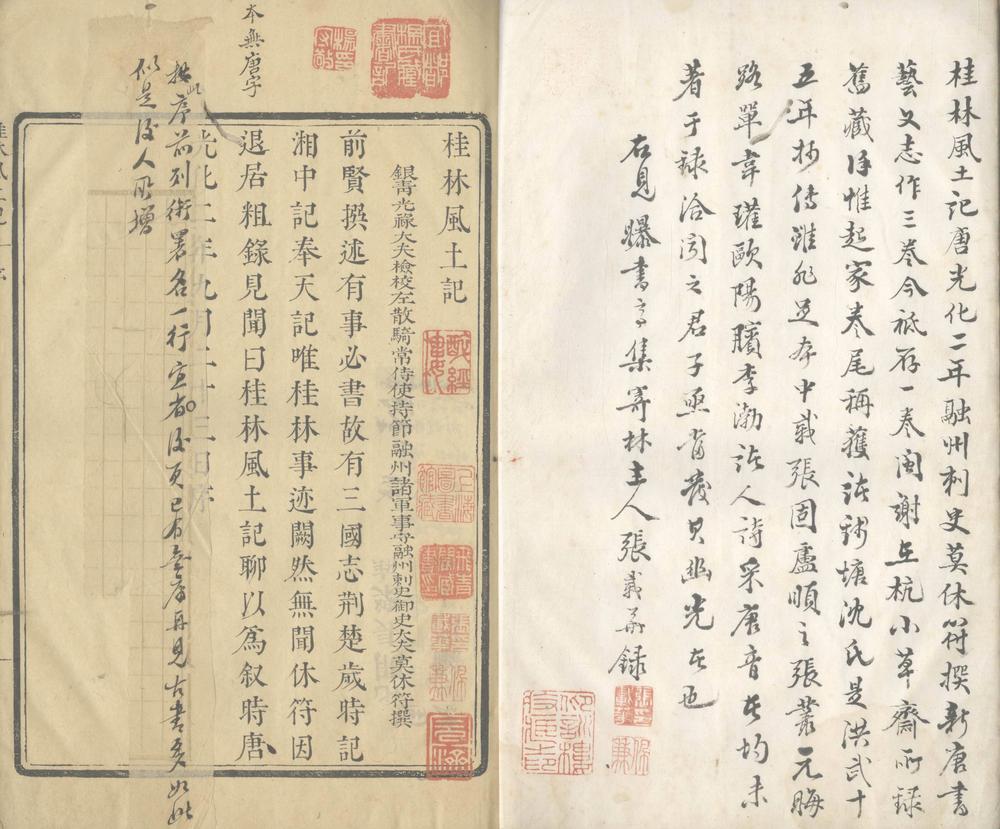 桂林風土記唐光化二年融州刺史莫休符撰新唐書
藝文志作三卷今祗存一卷閩謝在杭小草齋所録
舊藏徐惟起家卷尾稱獲諸錢塘沈氏是洪武十
五年抄傳雖非足本中載張固盧順之張叢元晦
路單韋瓘歐陽臏李渤諸人詩采唐音者均未
著于録洽聞之君子亟當發其幽光者也
右見曝書亭集寄林主人張載華録
桂林風土記
銀青光祿大夫檢校左散騎常侍使持節融州諸軍事守融州刺史御史大夫莫休符撰
前賢撰述有事必書故有三國志荆楚歲時記
湘中記奉天記唯桂林事迹闕然無聞休符因
退居粗錄見聞曰桂林風土記聊以爲叙時唐
本無唐字
光化二年九月二十三日序
按此序前列銜署名一行宜省後頁已有無庸再見古書多如此
似是後人所增